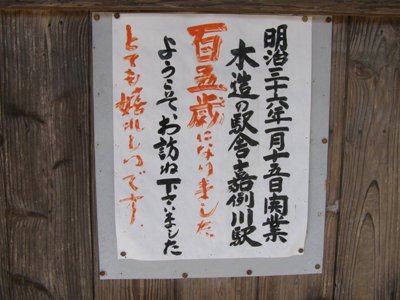 明治三十六年一月十五日開業
木造の駅舎嘉例川駅
百五歳になりました。
ようこそ、お訪ね下さいました
とても嬉しいのです。